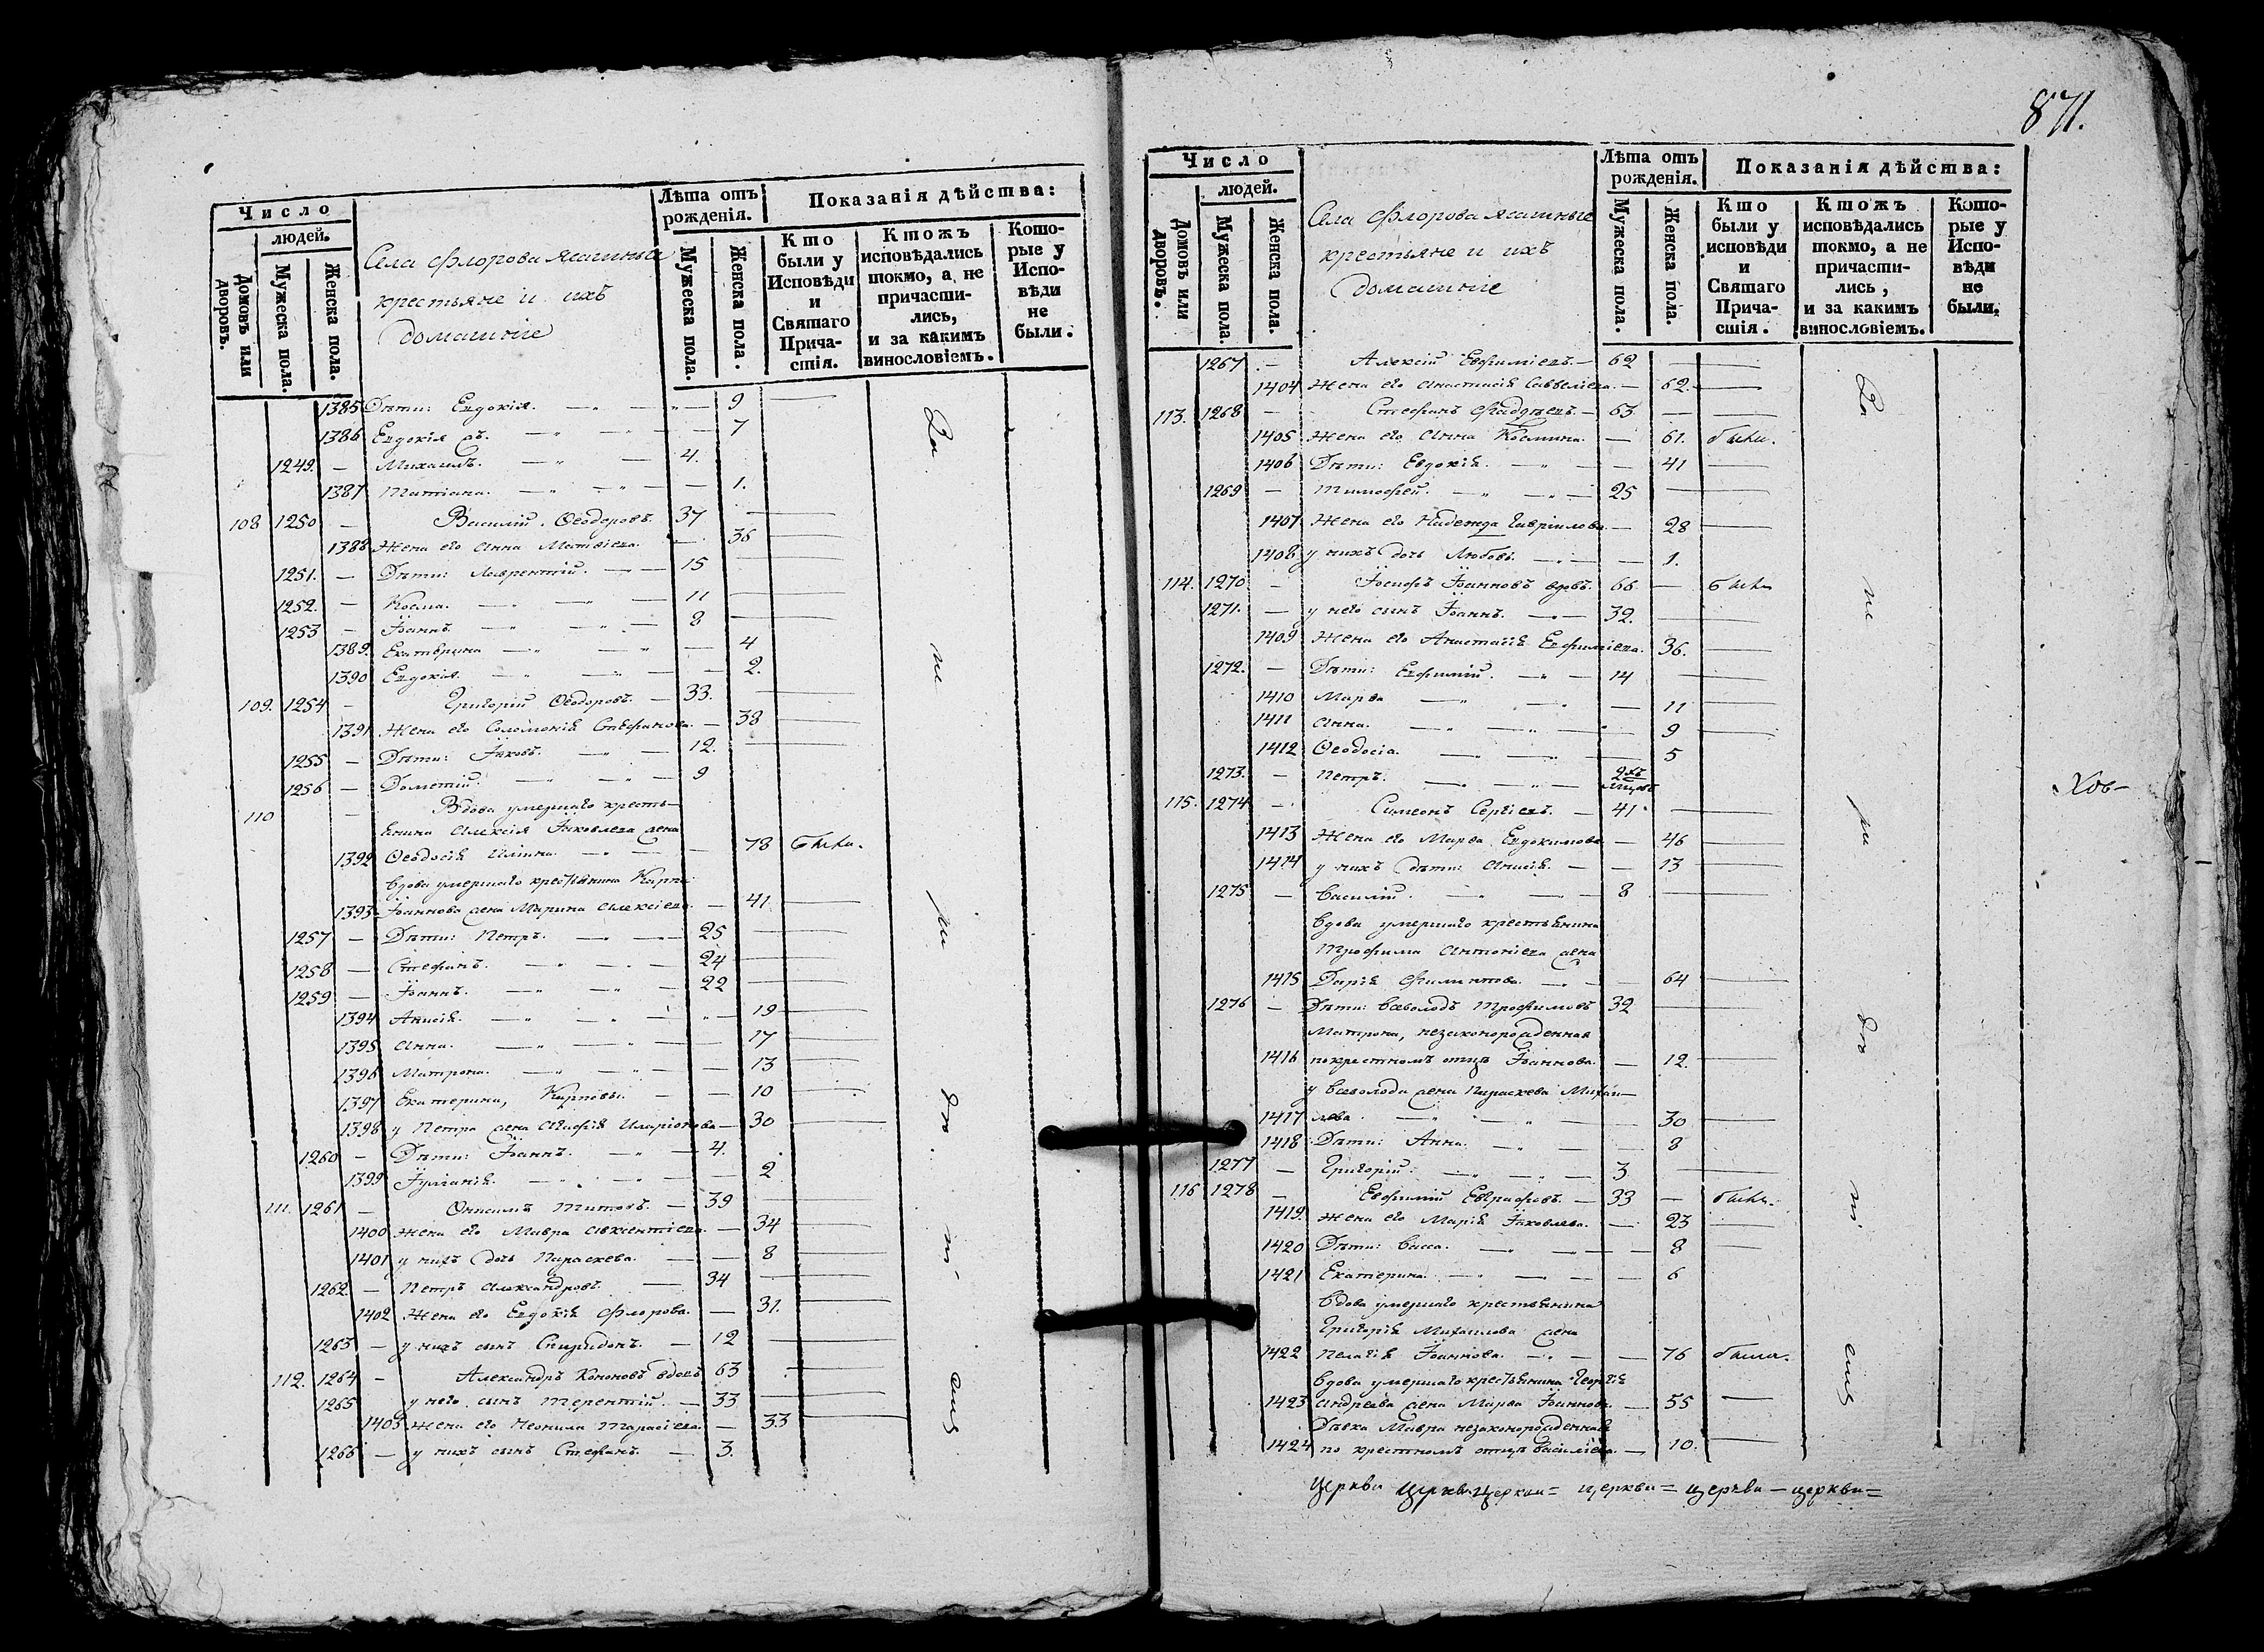 Число
людей.
Домовъ или дворовъ.
Мужеска пола.
Женска пола.
Села Флорова ясашныя
крестьяне и ихъ
домашніе
Лѣта отъ
рожденія.
Мужеска пола.
Женска пола.
Показанія дѣйства:
Кто
были у
Исповѣди
и
Святаго
Прича-
стія.
Ктожъ
исповѣдались
токмо, а не
причасти-
лись,
и за какимъ
винословіемъ.
Кото-
рые у
Испо-
вѣди
не
были.
1385 Дѣти: Евдокія. — 9 —
1386 Евдокія въ. — 7
1249. — Михаилъ. — 4.
1387 Татіана. — 1.
108 1250 — Василій Ѳеодоровъ. 37 —
1388 Жена его Анна Матвіева. — 36 —
1251. — Дѣти: Лаврентій. — 15
1252. — Косма. — 11 —
1253 — Іоаннъ. — 8 —
1389. Екатерина — 4
1390 Евдокія. — 2.
109. 1254 — Григорій Ѳеодоровъ. — 33. —
1391 Жена его Соломонія Стефанова. — 38 —
1255 — Дѣти: Іаковъ. — 12. —
1256 — Дометій. — 9
110 — Вдова умершаго кресть-
янина Алексія Іаковлева жена
1392 Ѳеодосія Иліина. — 78 была.
Вдова умершаго крестьянина Карпа
1393 Іоаннова жена Марина Алексіева. — 41. —
1257 — Дѣти: Петръ. — 25 —
1258 — Стефанъ. — 24 —
1259 — Іоаннъ. — 22 —
1394 Анисія. — 19 —
1395 Анна. — 17 —
1396 Матрона. — 13 —
1397 Екатерина, Карповы. — 10 —
1398 у Петра жена Агафія Иларіонова — 30 —
1260 — Дѣти: Іоаннъ. — 4.
1399 Іуліанія. — 2
111. 1261 — Онисимъ Титовъ. — 39 —
1400 Жена его Мавра Авксентіева. — 34 —
1401 у нихъ дочь Параскева. — 8 —
1262 — Петръ Александровъ. — 34 —
1402 Жена его Евдокія Флорова. — 31. —
1263 — у нихъ сынъ Спиридонъ. — 12 —
112. 1264 — Александръ Кононовъ вдовъ 63 —
1265 у него сынъ Терентій. — 33 —
1403 Жена его Неонила Тарасіева. — 33 —
1266 — у нихъ сынъ Стефанъ. — 3.
871.
Число
людей.
Домовъ или дворовъ.
Мужеска пола.
Женска пола.
Села Флорова ясашные
крестьяне и ихъ
домашніе
Лѣта отъ
рожденія.
Мужеска пола.
Женска пола.
Показанія дѣйства:
Кто
были у
исповѣди
и
Святаго
Прича-
стія.
Ктожъ
исповѣдались
токмо, а не
причасти-
лись,
и за какимъ
винословіемъ.
Кото-
рые у
Испо-
вѣди
не
были.
1267 — Алексій Евфиміевъ. — 62 —
1404 Жена его Анастасія Савеліева. — 62. —
113. 1268 — Стефанъ Фаддѣевъ. — 63. —
1405 Жена его Анна Космина. — 61. была.
1406 Дѣти: Евдокія. — 41 —
1269 — Тимоѳей. — 25 —
1407 Жена его Надежда Гавріилова. — 28 —
1408 у нихъ дочь Любовь. — 1.
114. 1270 — Іосифъ Іоанновъ вдовъ. 66 — былъ
1271. — у него сынъ Іоаннъ. — 32. —
1409 Жена его Анастасія Евфиміева. 36. —
1272. — Дѣти: Евфимій. — 14 —
1410 Марѳа — 11 —
1411 Анна. — 9 —
1412 Ѳеодосіа. — 5
1273. — Петръ. — 2хъ мѣсяцъ
115. 1274 — Симеонъ Сергіевъ. — 41 —
1413 Жена его Марѳа Евдокимова. — 46 —
1414 у нихъ дѣти: Анисія. — 13 —
1275 — Василій. — 8 —
Вдова умершаго крестьянина
Трофима Антоніева жена
1415 Дарія Филиппова. — 64 —
1276 — Дѣти: Всеволодъ Трофимовъ 32 —
Матрона, незаконорожденная
1416 по крестномъ отцѣ Іоаннова. — 12. —
у Всеволода жена Параскева Михаи-
1417 лова. — 30 —
1418 Дѣти: Анна. — 8
1277 — Григорій. — 3 —
116 1278 — Евфимій Евграфовъ. — 33 — былъ.
1419. Жена его Марія Іаковлева. — 23 —
1420 Дѣти: Васса. — 8 —
1421 Екатерина. — 6
Вдова умершаго крестьянина
Григорія Михаилова жена
1422 Пелагія Іоаннова. — 76 была.
Вдова умершаго крестьянина Георгія
1423 Андреева жена Марѳа Іоаннова. — 55 —
Дѣвка Мавра незаконорожденная
1424 по крестномъ отцѣ Василіева. — 10. —
Церкви церкви церкви = церкви = церкви — церкви =